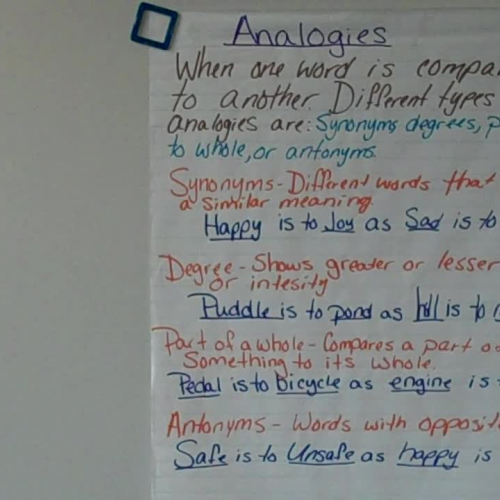 Analogies
When one word is compa
to another. Different types
analogies are: Synonyms, degrees, p
to whole, or antonyms.
Synonyms - Different words that
a similar meaning.
Happy is to Joy as Sad is to
Degree - Shows greater or lesser
or intesity
Puddle is to pond as hill is to
Part of a whole - Compares a part o
Something to its whole.
Pedal is to bicycle as engine is
Antonyms - Words with opposit
Safe is to Unsafe as happy is